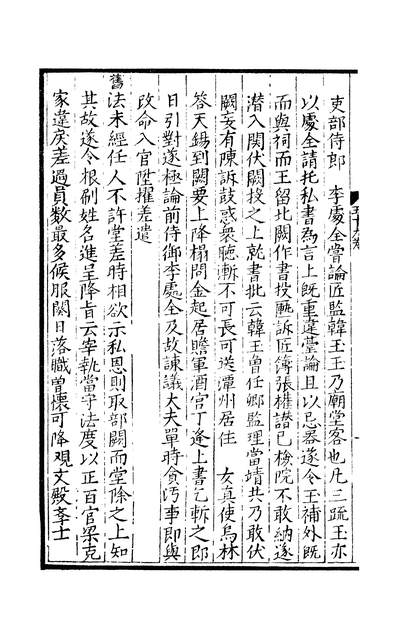 吏部侍郎　李處全嘗論匠監韓玉玉乃廟堂客也凡三疏玉亦
以處全請托私書為言上既重違臺論且以忌器遂令玉補外既
而與祠而王留北闕作書投匭訴匠簿張權譖己檢院不敢納遂
潜入閤伏闕投之上乾書批云韓玉曾任卿監理當靖共乃敢伏
闕妄有陳訴鼓惑衆聽斬不可長可送潭州居住　女真使烏林
答天錫到闕要上降榻問金起居贍軍酒官丁逢上書乞斬之即
日引對遂極論前侍御李處全及故諫議大夫單時貪污事即與
改命入官陞擢差遣
舊法未經任人不許堂差時相欲示私恩則取部闕而堂除之上知
其故遂令根刷姓名進呈降旨云宰執當守法度以正百官梁克
家違戾差過員數最多候服闋日落職曽懷可降觀文殿李士